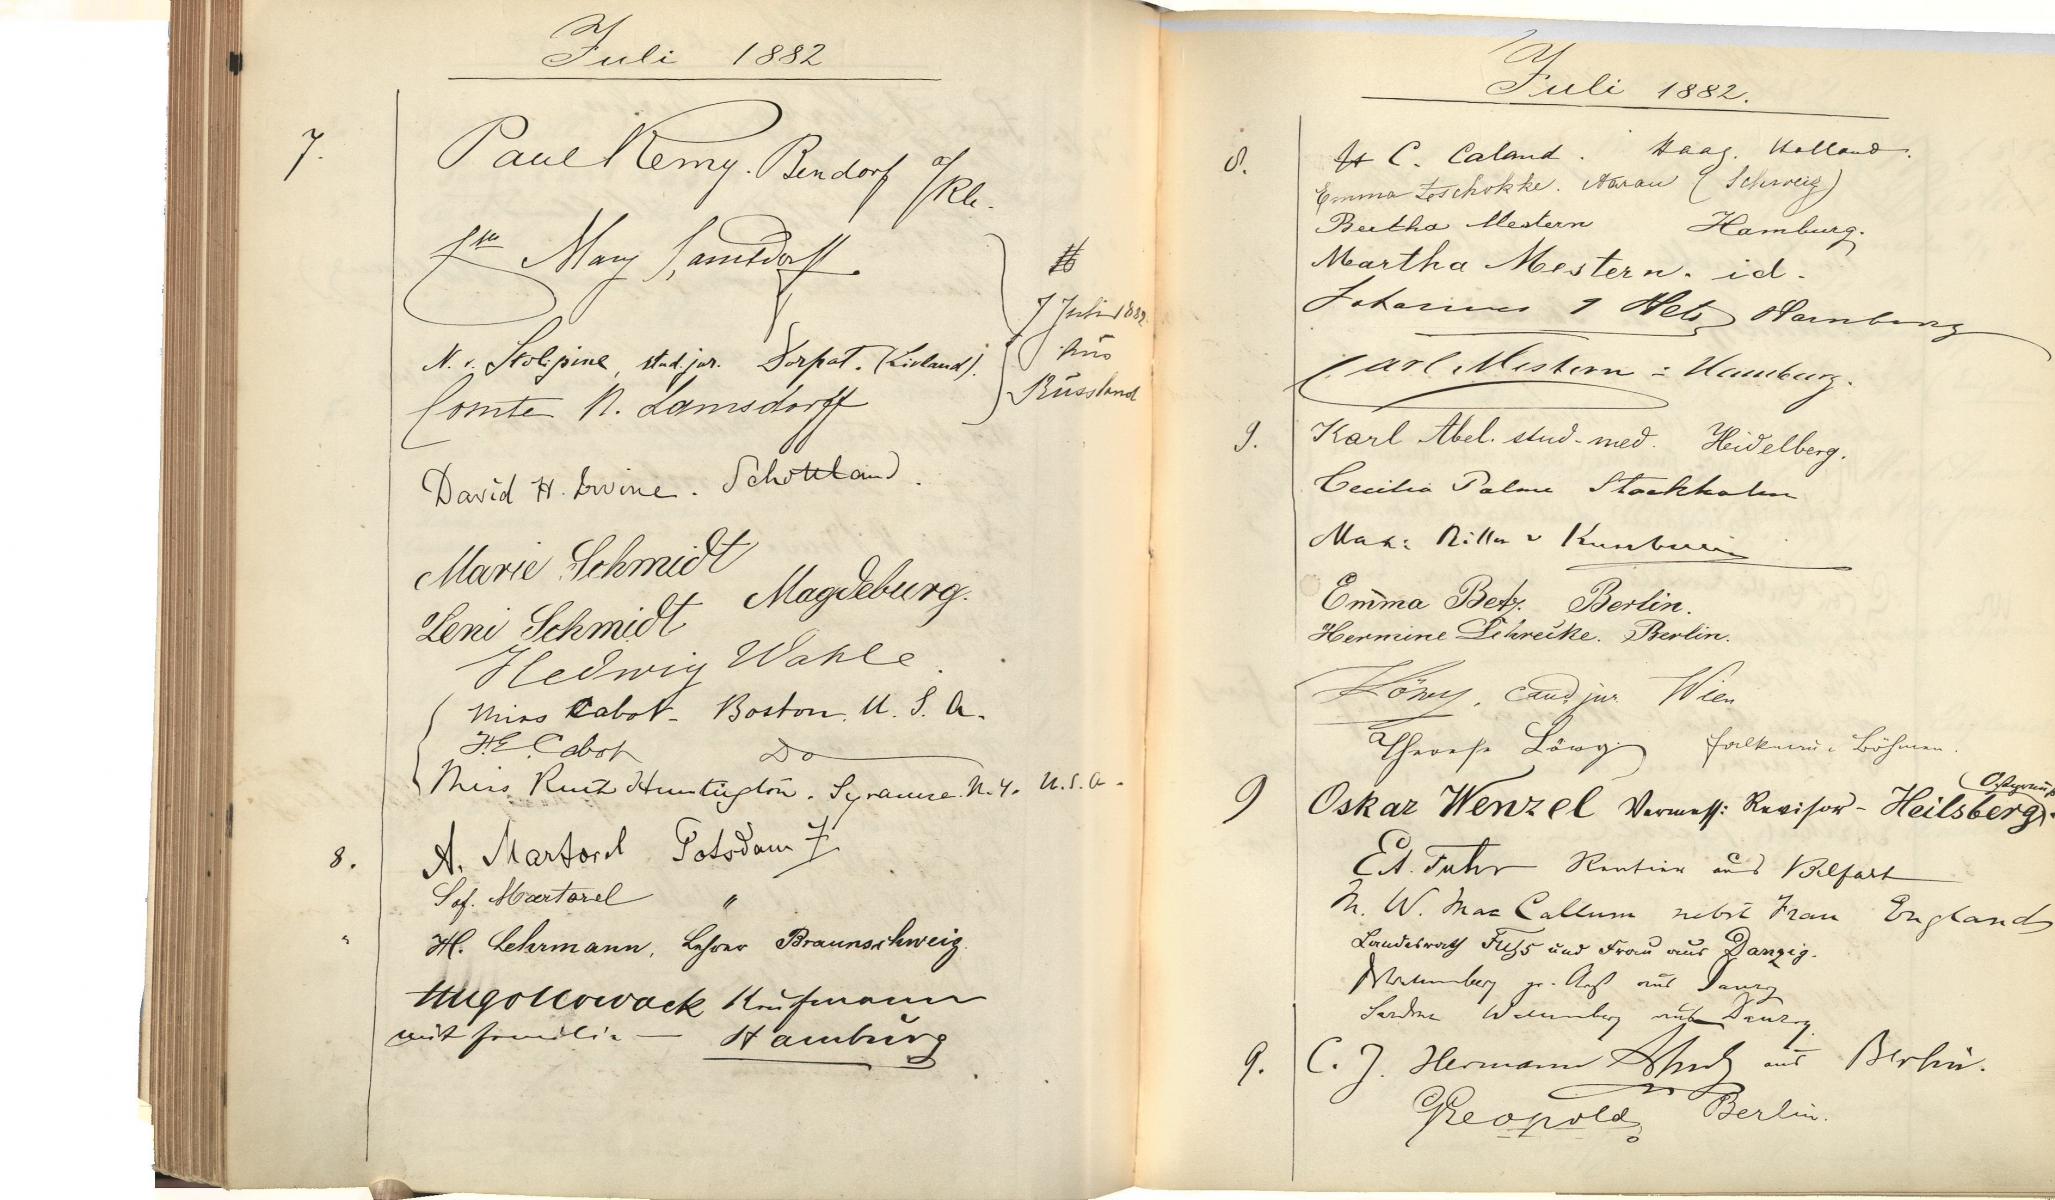 Juli 1882
7.
Paul Remy. Bendorf a/Rh.
Mary Lamsdorff.
7 Juli 1882
N. v. Stolipine, stud. jur. Dorpat. (Livland).
aus
Comte N. Lamsdorff
Russland
David H. Irvine. Schottland.
Marie Schmidt
Magdeburg.
Leni Schmidt
Hedwig Wahle.
Miss Cabot - Boston. U. S. A.
H. E. Cabot Do
Miss Ruth Huntington. Syracuse. N.Y. U.S.A.
8.
A. Martorel Potsdam
Sof. Martorel "
" H. Lehrmann, Lehrer Braunschweig.
Hugo Nowack Kaufmann
mit Familie — Hamburg
Juli 1882.
8.
C. Caland. Haag. Holland.
Emma Zschokke. Aarau (Schweiz)
Bertha Mestern Hamburg.
Martha Mestern. id.
Johannes Hamburg
Carl Mestern - Hamburg.
9.
Karl Abel. stud. med. Heidelberg.
Cecilia Palme Stockholm
Max: Ritter v
Emma Betz. Berlin.
Hermine Schrecke. Berlin.
cand. jur. Wien
Therese Löwy Falkenau Böhmen.
9 Oskar Wenzel Vermess: Revisor - Heilsberg
Rentier aus Belfort
M. W. Mac Callum nebst Frau England
Landesrath Fuss und Frau aus Danzig.
aus Danzig
aus Danzig
9.
C. J. Hermann aus Berlin.
Leopold Berlin.